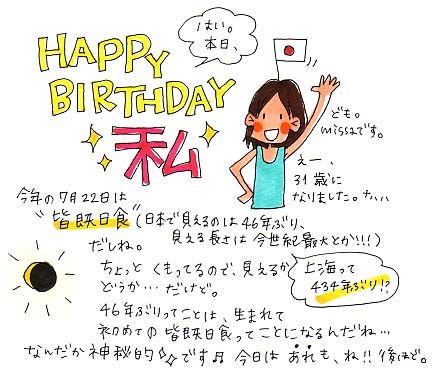 はい。
本日、
HAPPY
BIRTHDAY
私
ども。
missaです。
えー、
31歳に
なりました。ナハハ
今年の7月22日は
"皆既日食"(日本で見えるのは46年ぶり、
見える長さは今世紀最大とか!!!)
だしね。
ちょっと くもってるので、見えるか
どうか… だけど。
上海って
434年ぶり!?
46年ぶりってことは、生まれて
初めての 皆既日食ってことになるんだね…
なんだか神秘的です♫ 今日は あれも、ね!! 後ほど。